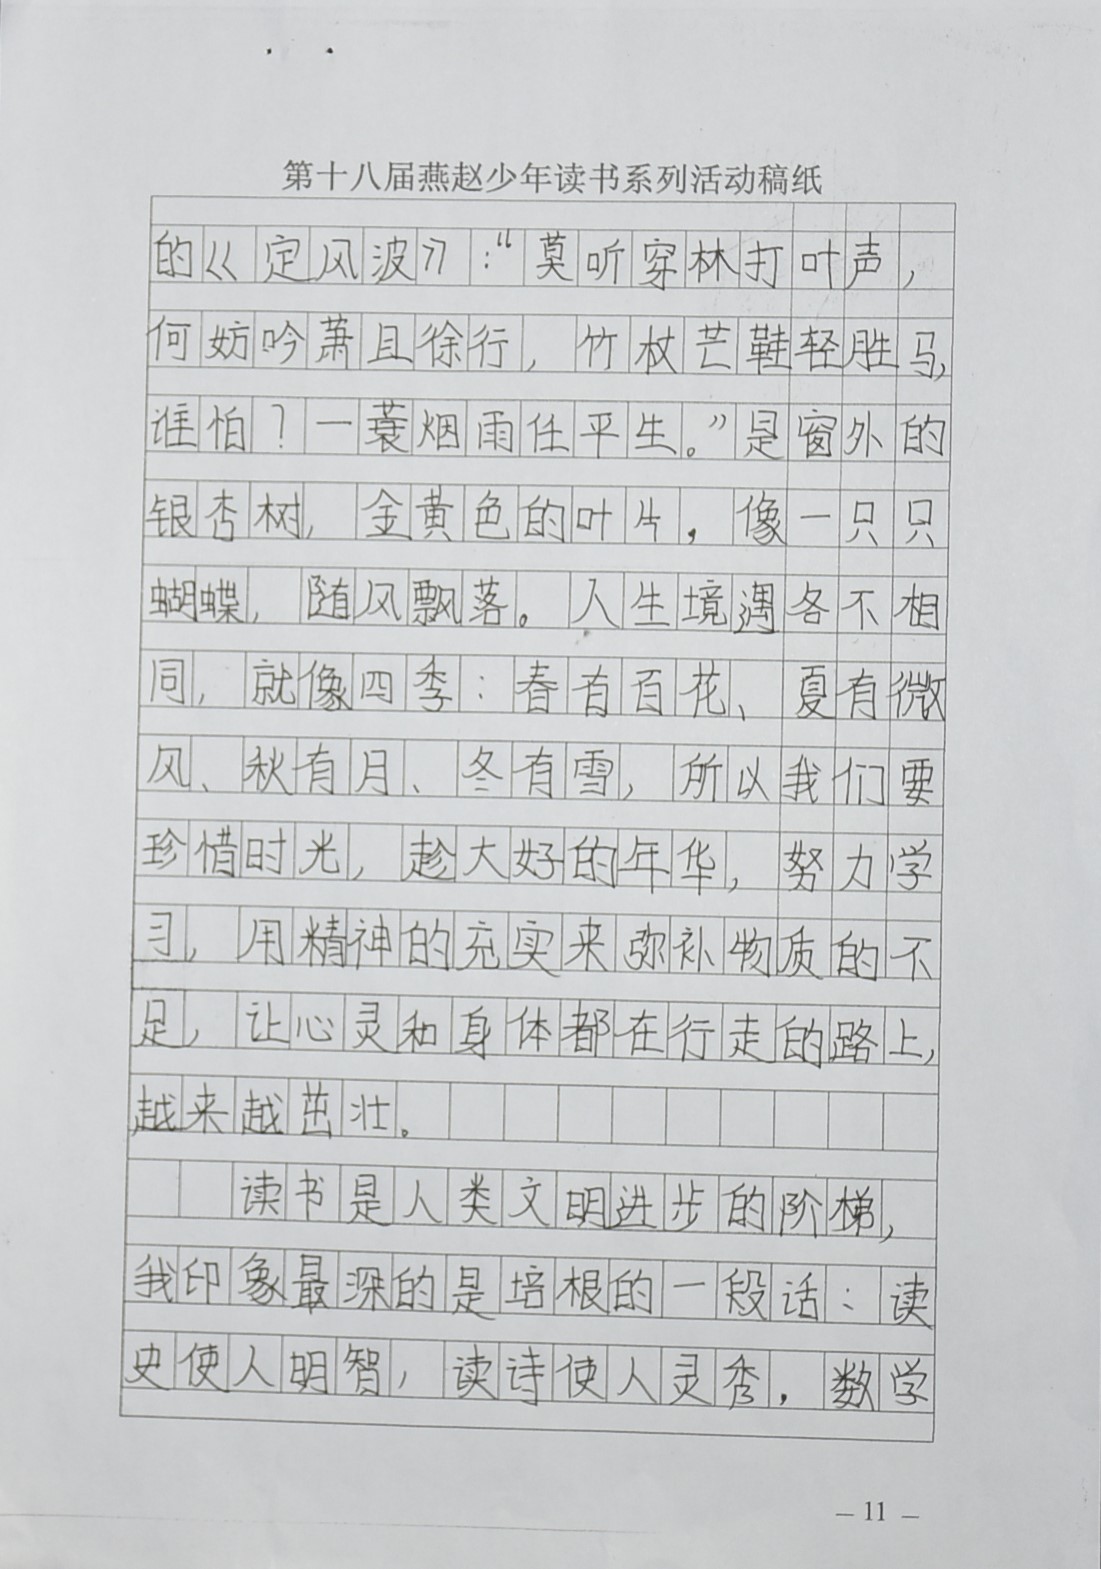 第十八届燕赵少年读书系列活动稿纸
的《定风波》:“莫听穿林打叶声,
何妨吟萧且徐行,竹杖芒鞋轻胜马,
谁怕?一蓑烟雨任平生。”是窗外的
银杏树,金黄色的叶片,像一只只
蝴蝶,随风飘落。人生境遇各不相
同,就像四季:春有百花、夏有微
风、秋有月、冬有雪,所以我们要
珍惜时光,趁大好的年华,努力学
习,用精神的充实来弥补物质的不
足,让心灵和身体都在行走的路上,
越来越茁壮。
读书是人类文明进步的阶梯,
我印象最深的是培根的一段话:读
史使人明智,读诗使人灵秀,数学
— 11 —